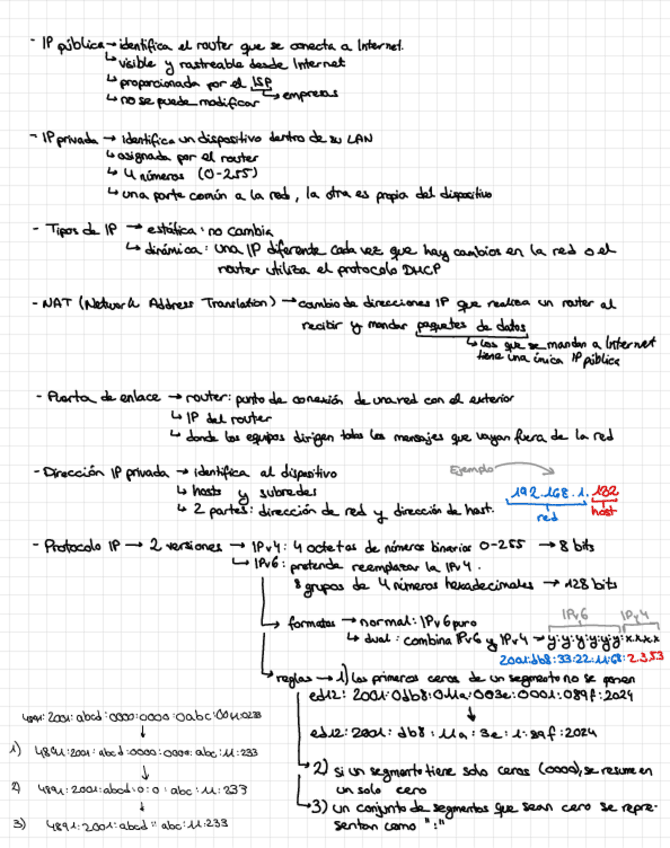 - IP pública → identifica el router que se conecta a Internet.
↳ visible y rastreable desde Internet
↳ proporcionada por el ISP
↳ empresas
↳ no se puede modificar
- IP privada → identifica un dispositivo dentro de su LAN
↳ asignada por el router
↳ 4 números (0-255)
↳ una parte común a la red, la otra es propia del dispositivo
- Tipos de IP → estática: no cambia
↳ dinámica: una IP diferente cada vez que hay cambios en la red o el
router utiliza el protocolo DHCP
- NAT (Network Address Translation) → cambio de direcciones IP que realiza un router al
recibir y mandar paquetes de datos
↳ los que se mandan a Internet
tiene una única IP pública
- Puerta de enlace → router: punto de conexión de una red con el exterior
↳ IP del router
↳ donde los equipos dirigen todos los mensajes que vayan fuera de la red
- Dirección IP privada → identifica al dispositivo
↳ hosts y subredes
↳ 2 partes: dirección de red y dirección de host.
Ejemplo
192.168.1.132
red host
- Protocolo IP → 2 versiones → IPv4: 4 octetos de números binarios 0-255 → 8 bits
↳ IPv6: pretende reemplazar la IPv4.
8 grupos de 4 números hexadecimales → 128 bits
IPv6 IPv4
↳ formatos → normal: IPv6 puro
↳ dual: combina IPv6 y IPv4 → y:y:y:y:y:y:x.x.x.x
2001:db8:33:22:11:68:2.3.53
↳ reglas → 1) los primeros ceros de un segmento no se ponen
ed12:2001:0db8:011a:003e:0001:089f:2024
↓
ed12:2001:db8:11a:3e:1:89f:2024
↳ 2) si un segmento tiene solo ceros (0000), se resume en
un solo cero
↳ 3) un conjunto de segmentos que sean cero se repre-
sentan como "::"
4891:2001:abcd:0000:0000:0abc:0011:0233
↓
1) 4891:2001:abcd:0000:0000:abc:11:233
↓
2) 4891:2001:abcd:0:0:abc:11:233
↓
3) 4891:2001:abcd::abc:11:233